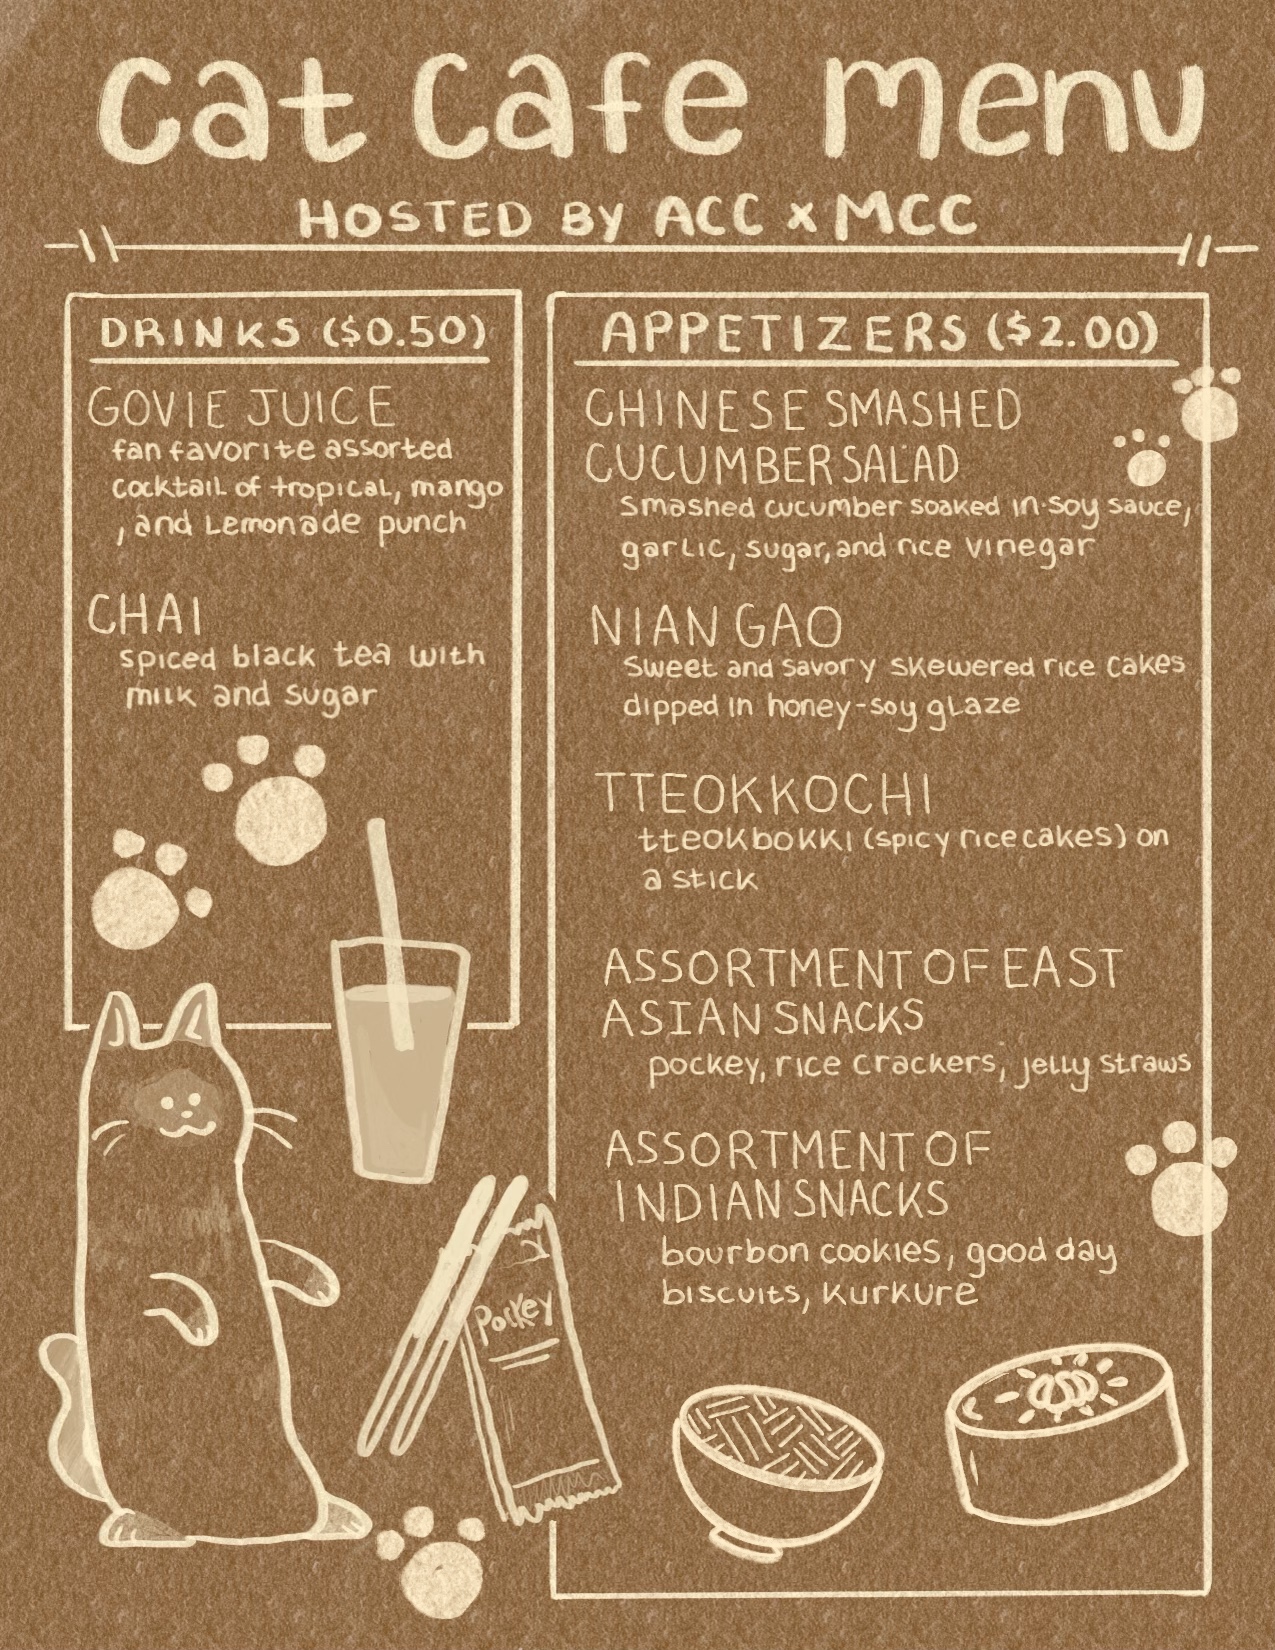 Cat Cafe Menu
HOSTED BY ACC x MCC
DRINKS ($0.50)
GOVIE JUICE
fan favorite assorted
cocktail of tropical, mango
, and Lemonade punch
CHAI
spiced black tea with
milk and sugar
APPETIZERS ($2.00)
CHINESE SMASHED
CUCUMBER SALAD
Smashed cucumber soaked in soy sauce,
garlic, sugar, and rice vinegar
NIAN GAO
Sweet and savory skewered rice cakes
dipped in honey-soy glaze
TTEOKKOCHI
tteokbokki (spicy rice cakes) on
a stick
ASSORTMENT OF EAST
ASIAN SNACKS
pockey, rice crackers, jelly straws
ASSORTMENT OF
INDIAN SNACKS
bourbon cookies, good day
biscuits, kurkure
Pockey